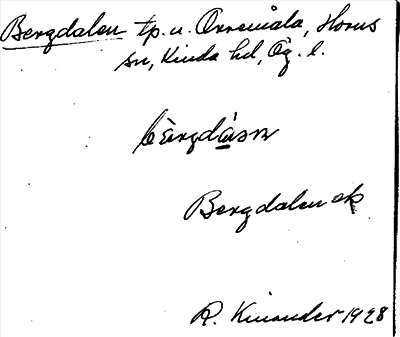 Bergdalen tp. u. Orremåla, Horns
sn, Kinda hd, Ög. l.
bärgdásn
Bergdalen ek
R. Kinander 1928